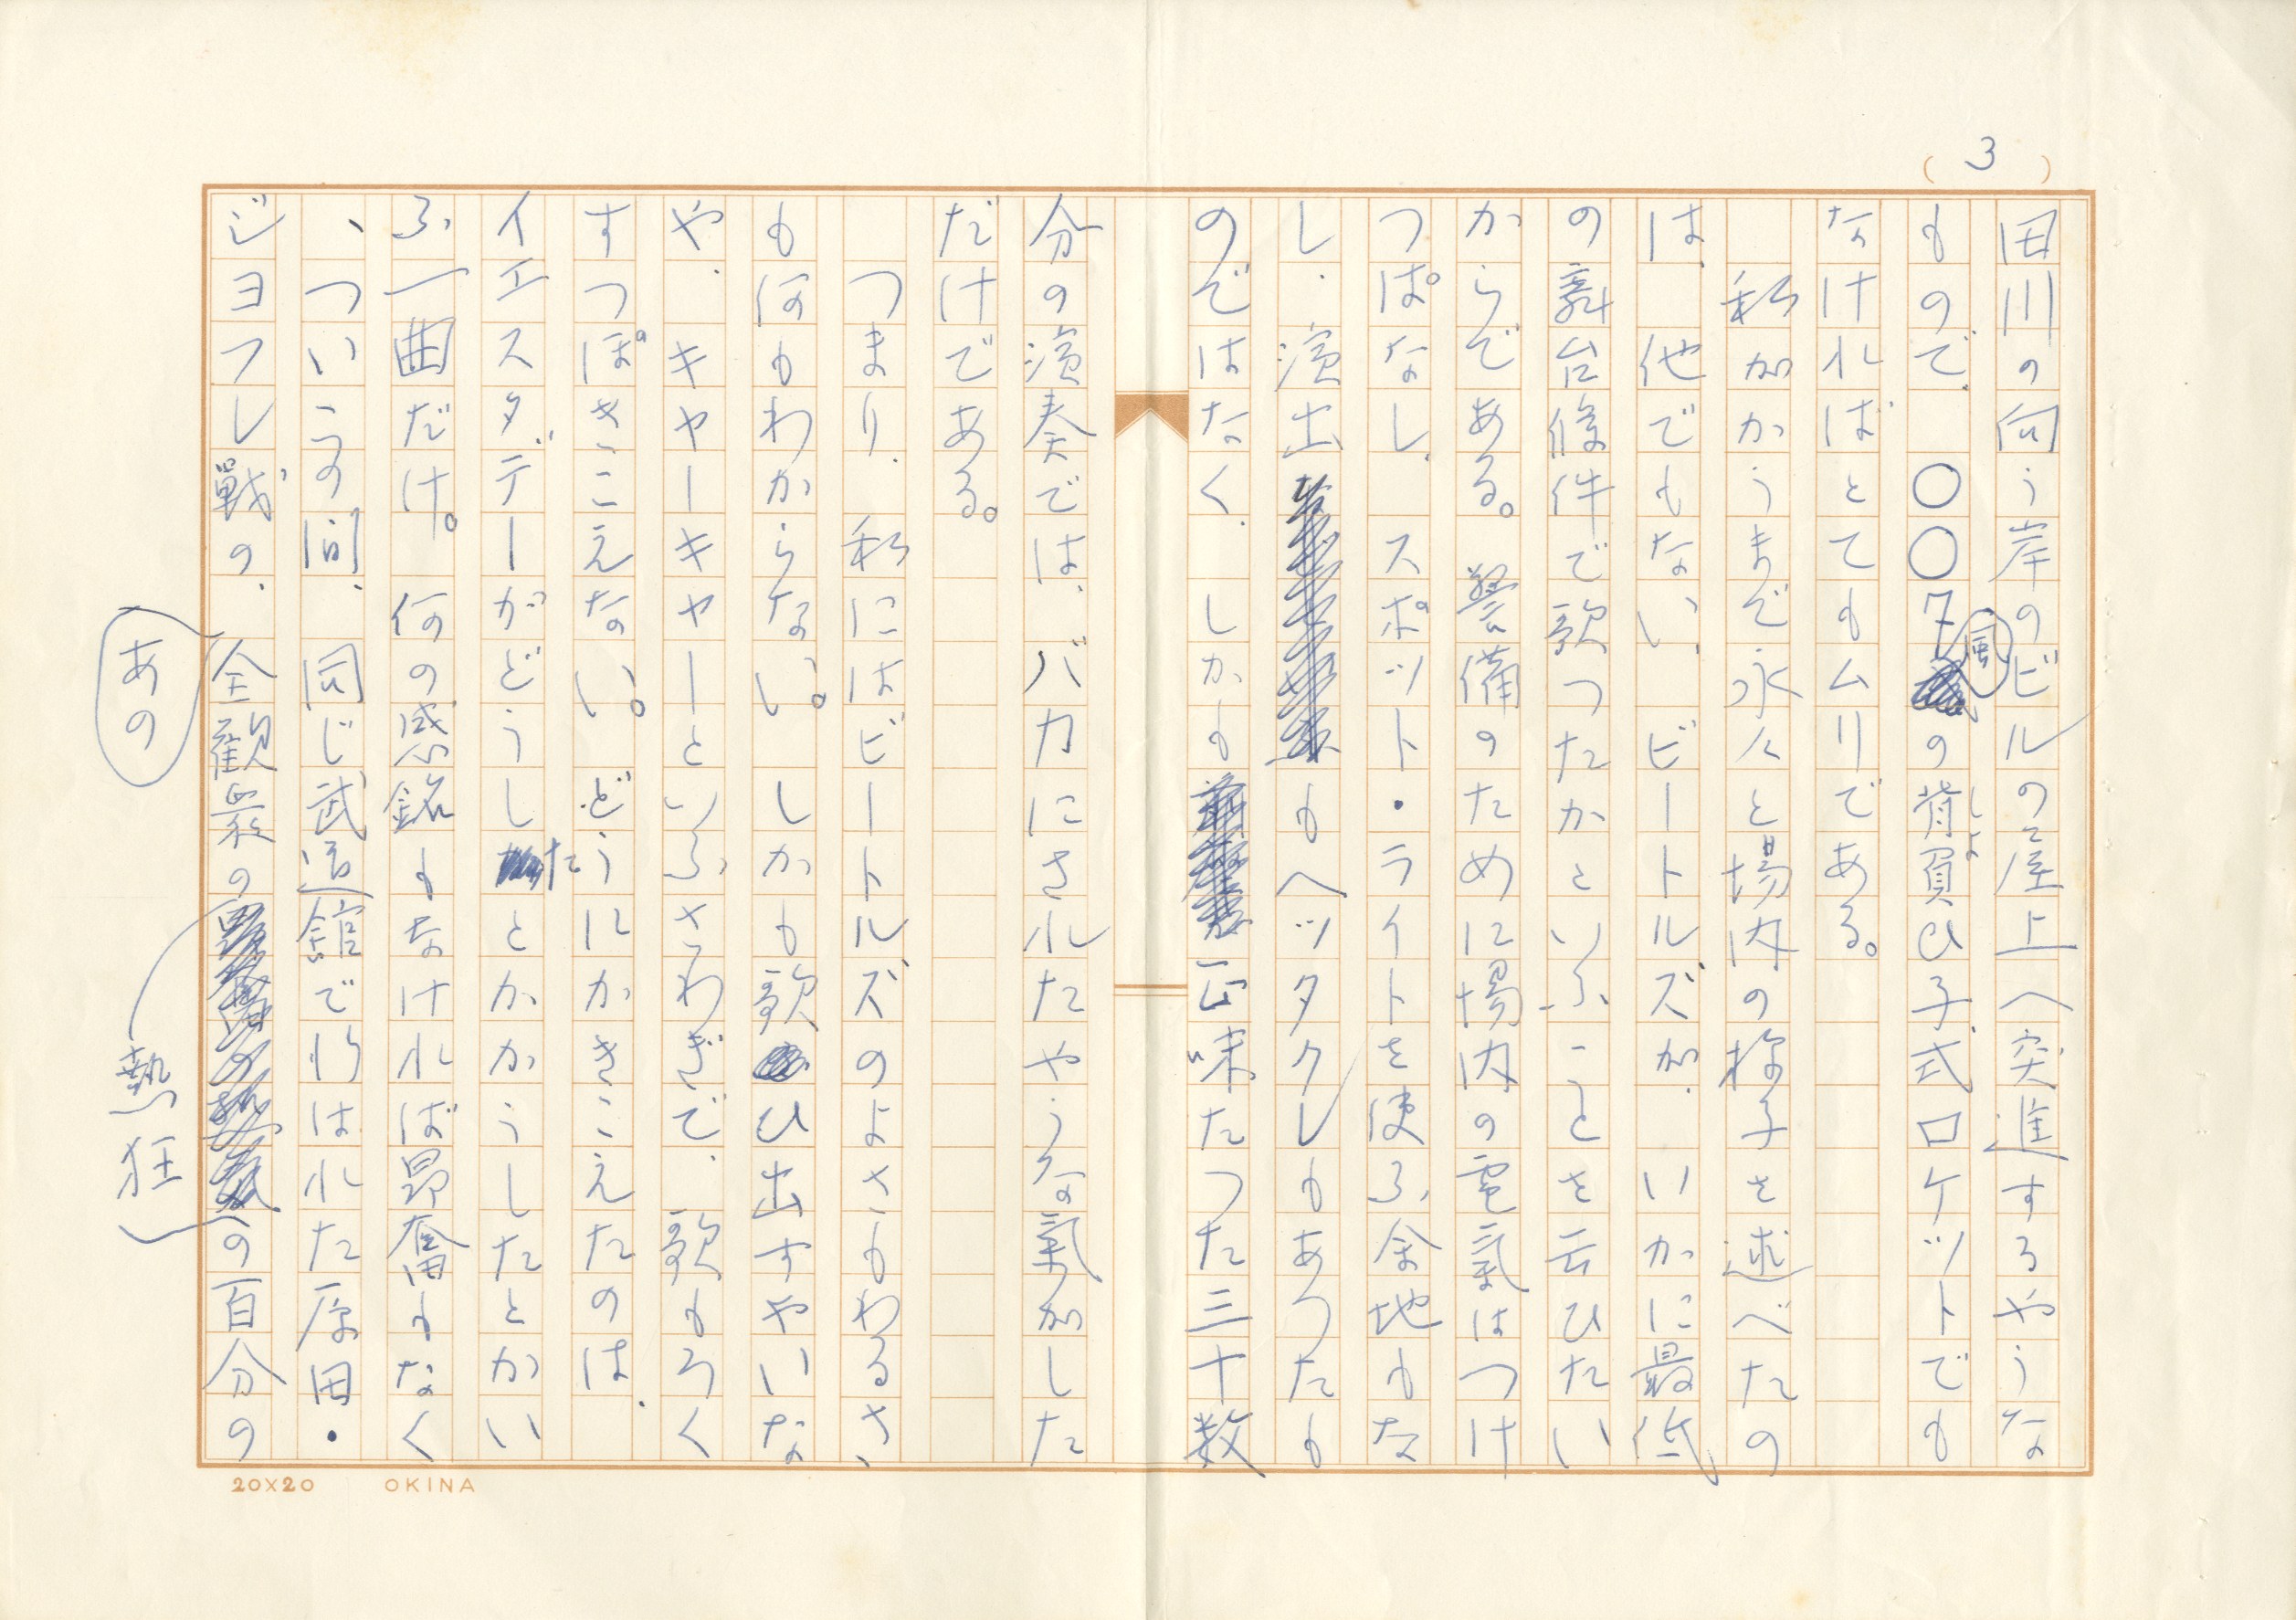 (3)
田川の向う岸のビルの屋上へ突進するやうな
もので、〇〇7風の背負ひ子式ロケットでも
しよ
なければとてもムリである。
私がかうまで永々と場内の様子を述べたの
は、他でもない、ビートルズが、いかに最低
の舞台條件で歌つたかといふことを云ひたい
からである。警備のために場内の電氣はつけ
つぱなし、スポット・ライトを使ふ余地もな
し、演出もヘッタクレもあつたも
のではなく、しかも正味たつた三十数
分の演奏では、バカにされたやうな氣がした
だけである。
つまり、私にはビートルズのよさもわるさ
も何もわからない。しかも歌ひ出すやいな
や、キャーキャーといふさわぎで、歌もろく
すつぽきこえない。どうにかきこえたのは、
イエスタデーがどうしたとかかうしたとかい
ふ一曲だけ。何の感銘もなければ昂奮もなく
、ついこの間、同じ武道館で行はれた原田・
ジヨフレ戰の、あの全觀衆の熱狂の百分の
20×20 OKINA